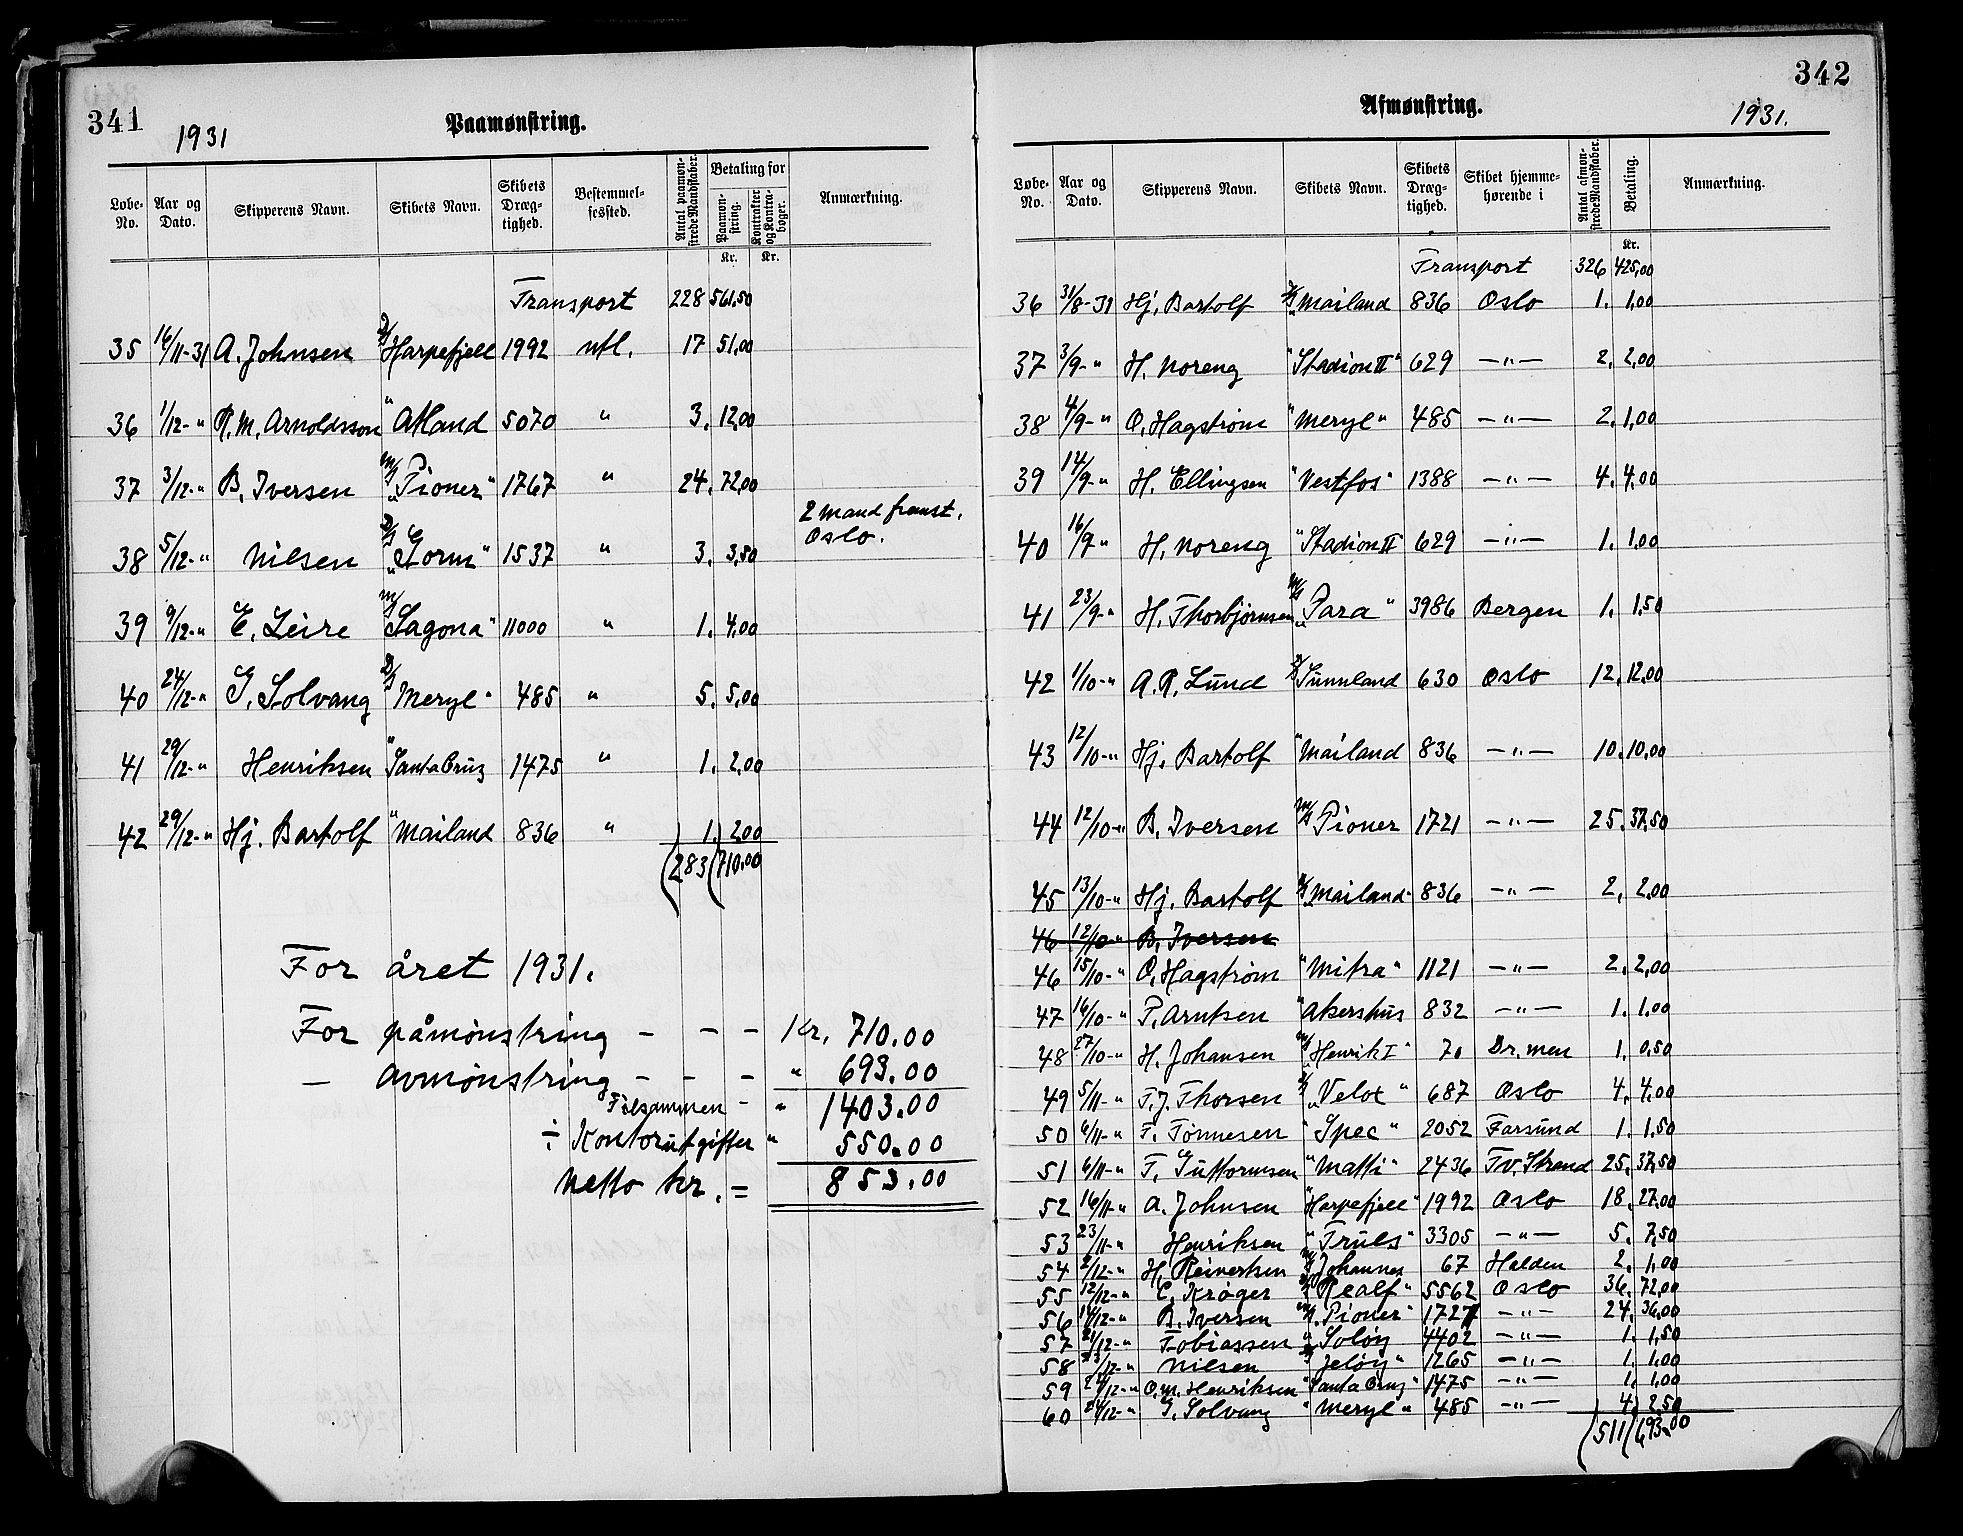 341
1931
Paamønstring.
Løbe-No. Aar og Dato. Skipperens Navn. Skibets Navn. Skibets Dræg-tighed. Bestemmel-sessted. Antal paamøn-strede Mandskaber. Betaling for Paamøn-string. Kontrakter og Kontra-bøger. Anmærkning.
Kr. Kr.
Transport 228 561,50
35 16/11-31 A. Johnsen D/S Harpefjell 1992 utl. 17 51,00
36 1/12-" R.M. Arnoldsson " Atland 5070 " 3. 12,00
37 3/12-" B. Iversen M/S "Pioner" 1767 " 24. 72,00
2 mand fremst. Oslo.
38 5/12-" Nilsen D/S "Gorm" 1537 " 3. 3,50
39 9/12-" E. Leire M/S "Sagona" 11000 " 1. 4,00
40 24/12-" G. Solvang D/S "Meryl" 485 " 5. 5,00
41 29/12-" Henriksen " Santa Cruz 1475 " 1. 2,00
42 29/12-" Hj. Bartolf " Mailand 836 " 1. 2,00
283 710,00
For året 1931.
For påmønstring - - - Kr. 710.00
— avmønstring - - - " 693.00
Tilsammen - " 1403.00
÷ Kontorutgifter " 550.00
Netto kr. = 853.00
342
Afmønstring.
1931.
Løbe-No. Aar og Dato. Skipperens Navn. Skibets Navn. Skibets Dræg-tighed. Skibet hjemme-hørende i Antal afmøn-strede Mandskaber. Betaling. Anmærkning.
Kr.
Transport 326 425,00
36 31/8-31 Hj. Bartolf D/S "Mailand 836 Oslo 1. 1,00
37 3/9-" H. Noreng "Stadion II" 629 —"— 2. 2,00
38 4/9-" O. Hagstrøm "Meryl" 485 —"— 2. 1,00
39 14/9-" H. Ellingsen "Vestfos" 1388 —"— 4. 4,00
40 16/9-" H. Noreng "Stadion II 629 —"— 1. 1,00
41 23/9-" H. Thorbjørnsen M/S "Para" 3986 Bergen 1. 1,50
42 1/10-" A.R. Lund D/S Sunnland 630 Oslo 12. 12,00
43 12/10-" Hj. Bartolf "Mailand 836 —"— 10. 10,00
44 12/10-" B. Iversen M/S Pioner 1721 —"— 25. 37,50
45 13/10-" Hj. Bartolf D/S "Mailand" 836 —"— 2. 2,00
46 12/10-" B. Iversen
46 15/10-" O. Hagstrøm "Mitra" 1121 —"— 2. 2,00
47 16/10-" P. Arntsen "Akershus 832 —"— 1. 1,00
48 27/10-" H. Johansen M/S "Henrik I" 70 Dr.men 1. 0,50
49 5/11-" T.J. Thorsen D/S "Velox" 687 Oslo 4. 4,00
50 6/11-" F. Tønnesen "Spec" 2052 Farsund 1. 1,50
51 6/11-" T. Guttormsen "Matti" 2436 Tv.Strand 25. 37,50
52 16/11-" A. Johnsen "Harpefjell" 1992 Oslo 18. 27,00
53 23/11-" Henriksen "Truls" 3305 —"— 5. 7,50
54 2/12-" H. Reinertsen M/S Johannes 67 Halden 2. 1,00
55 12/12-" C. Krøger "Realf" 5562 Oslo 36. 72,00
56 14/12-" B. Iversen M/S "Pioner" 1727 —"— 24. 36,00
57 21/12-" Tobiassen " Soløy 4402 —"— 1. 1,50
58 23/12-" Nilsen "Jeløy" 1265 —"— 1. 1,00
59 24/12-" O.M. Henriksen "Santa Cruz" 1475 —"— 1. 1,00
60 24/12-" G. Solvang "Meryl" 485 —"— 4. 2,50
511 693.00